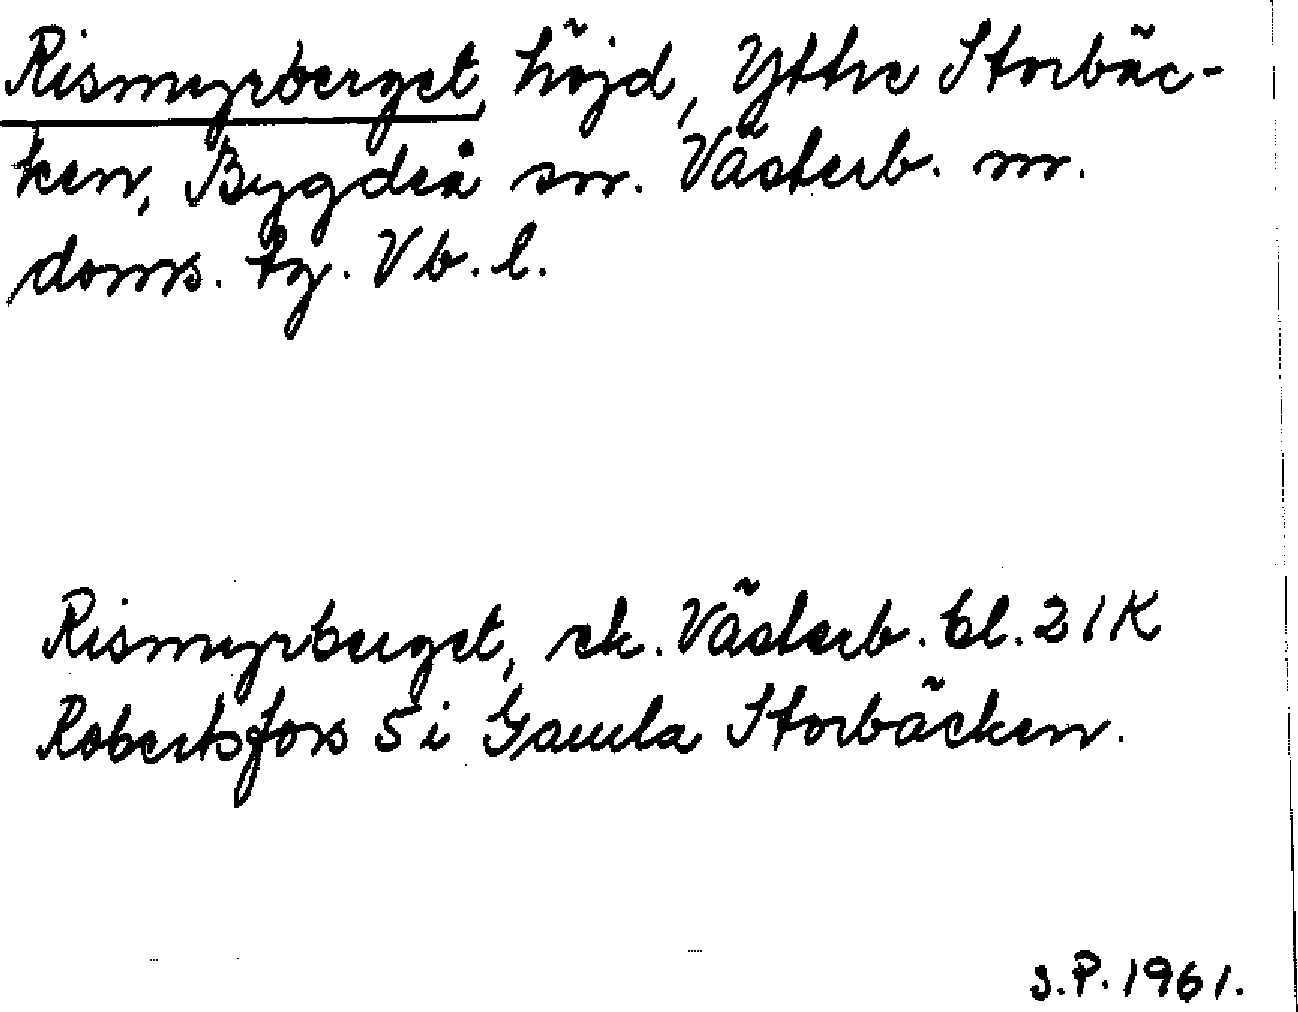 Rismyrberget, höjd, Yttre Storbäc-
ken, Bygdeå sn. Västerb. m.
doms. tg. Vb. l.
Rismyrberget, ek. Västerb. bl. 21K
Robertsfors 5 i Gamla Storbäcken.
S.P. 1961.